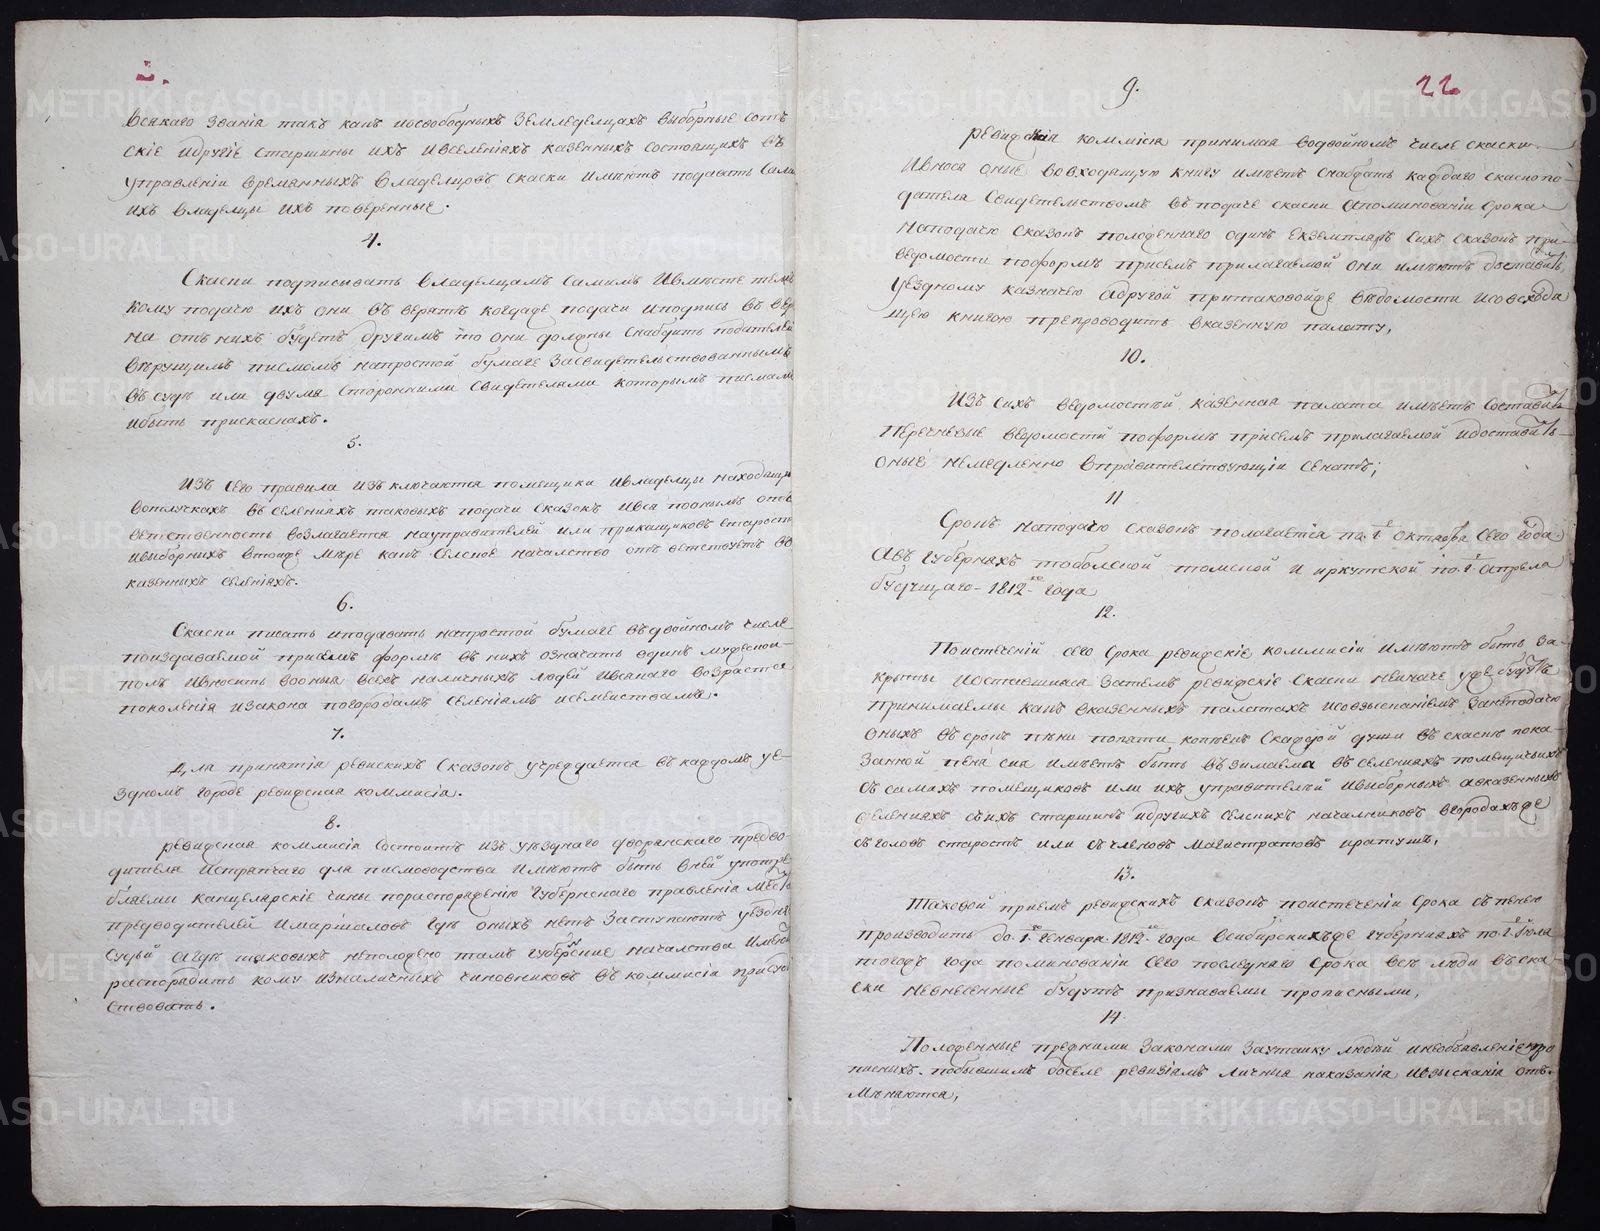 всякаго званія такъ какъ исвободныхъ земледелцахъ выборные сотъ
скіе идругіе старшины ихъ ивселеніяхъ казенныхъ состоящихъ въ
управленіи временныхъ владелцовъ скаски имеютъ подавать сами
ихъ владелцы ихъ поверенные.
4.
Скаски подписывать владелцамъ самимъ ивместе темъ
кому подачю ихъ они въ верятъ когдаже подачи иподпись въ вер
на отъ нихъ будетъ другимъ то они должны снабдить подателей
верущимъ писмомъ напростой бумаге засвидетельствованнымъ
въ суде или двумя сторонними свидетелями которымъ писмамъ
ибыть прискаскахъ.
5.
Изъ сего правила изъключаются помещики ивладелцы находящи
вотлучкахъ въ селеніяхъ таковыхъ подачи сказокъ ився поонымъ отве
ветственность возлагается науправителей или прикащиковъ старостъ
ивыборныхъ втойже мере какъ селское началство ответствуетъ во
казенныхъ селеніяхъ.
6.
Скаски писать иподавать напростой бумаге въ двойномъ числе
поиздаваемой присемъ форме въ нихъ означать одинъ мужескои
полъ ивносить воныя всехъ наличныхъ людей исякаго возраста
поколенія изакона погородамъ селеніямъ исемействамъ.
7.
Для принятія ревискихъ сказокъ учреждается въ каждомъ уе-
здномъ городе ревижская коммисія.
8.
ревижская коммисія состоитъ изъ уезднаго дворянскаго предво-
дителя истряпчаго для писмоводства имеютъ быть вней употре
бляемы канцелярскіе чины пораспоряженію губернскаго правленія месть
предводителей имаршаловъ где оныхъ нетъ заступаютъ уездные
судьи агде таковыхъ неположено тамъ губернские началства имеютъ
распорядить кому изналичныхъ чиновниковъ въ коммисіи присуд
ствовать.
22
9.
ревижская коммисія принимая водвойномъ числе скаски
ивнося оные вовходящую книгу имеетъ снабжать каждаго сказкопо-
дателя свидетельствомъ въ подаче скаски апоминованіи срока
наподачю сказокъ положеннаго одинъ екземпляръ сихъ сказокъ при
ведомости поформе присемъ прилагаемой они имеютъ доставить
уездному казначею адругой притаковойже ведомости исовсходя
щею книгою препроводить вказенную палату,
10.
Изъ сихъ ведомостей казенная палата имеетъ составить
перечневые ведомости поформе присемъ прилагаемой идоставить
оные немедленно вправителствующіи сенатъ;
11
Срокъ наподачю сказокъ полагается по 1 октября сего года
авъ губерніяхъ тоболской томской и иркутской по 1 апреля
будущаго 1812го года
12.
Поистеченій сего срока ревижскіе коммисіи имеютъ быть за-
крыты иоставшияся затемъ ревижскіе скаски неиначе уже будутъ
принимаемы какъ вказенныхъ палатахъ исовзысканіемъ занеподачю
оныхъ въ срокъ пени попяти копеекъ скаждой души въ скаске пока-
занной пеня сия имеетъ быть взимаема въ селеніяхъ помещичьихъ
съ самихъ помещиковъ или ихъ управителей ивыборныхъ авказенныхъ
селеніяхъ съихъ старшинъ идругихъ селскихъ началниковъ вгородахъже
съ головъ старостъ или съ членовъ магистратовъ иратушъ.
13.
Таковой приемъ ревижскихъ сказокъ поистеченіи срока съ пенею
производить до 1го генваря 1812го года всибирскихъже губерніяхъ по 1 іюля
тогожъ года поминованіи сего последняго срока все люди въ ска
ски невнесенные будутъ признаваемы прописными,
14.
Положенные прежними законами заутайку людей инеобъявленіе про
писныхъ побывшимъ доселе ревизіямъ личныя наказанія ивзысканія отъ-
меняются,